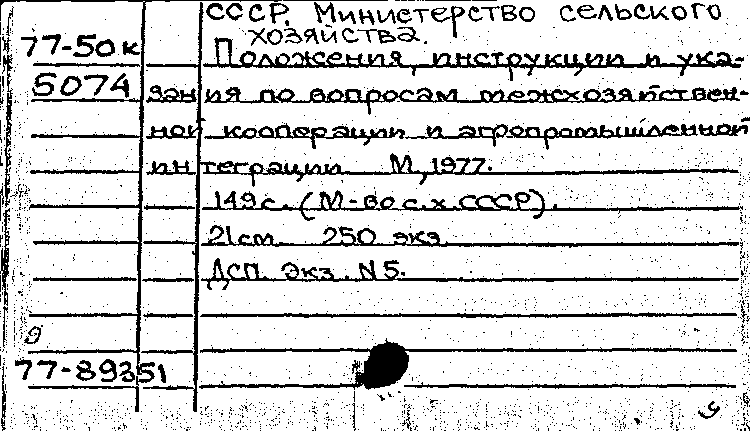 СССР. Министерство сельского
хозяйства.
77-50к
Положения, инструкции и ука-
5074
зания по вопросам межхозяйствен-
ной кооперации и агропромышленной
интеграции. М, 1977.
149с. (М-во с.х. СССР).
21см. 250 экз.
ДСП. Экз. N5.
77-89351